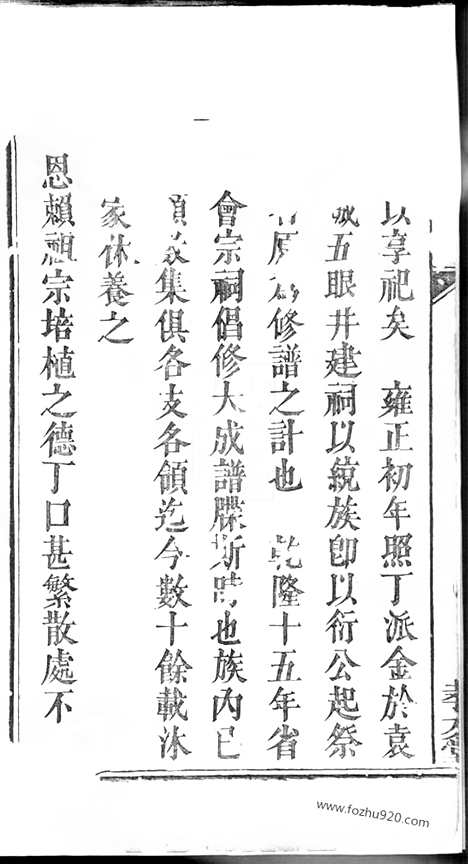 以享祀矣　雍正初年照丁派金於袁
城五眼井建祠以統族卽以衍公起祭
爲修譜之計也　乾隆十五年省
會宗祠倡修大成譜牒斯時也族內已
集俱各支各領迄今數十餘載沐
家休養之
恩賴祖宗培植之德丁口甚繁散處不
www.fozhu920.com